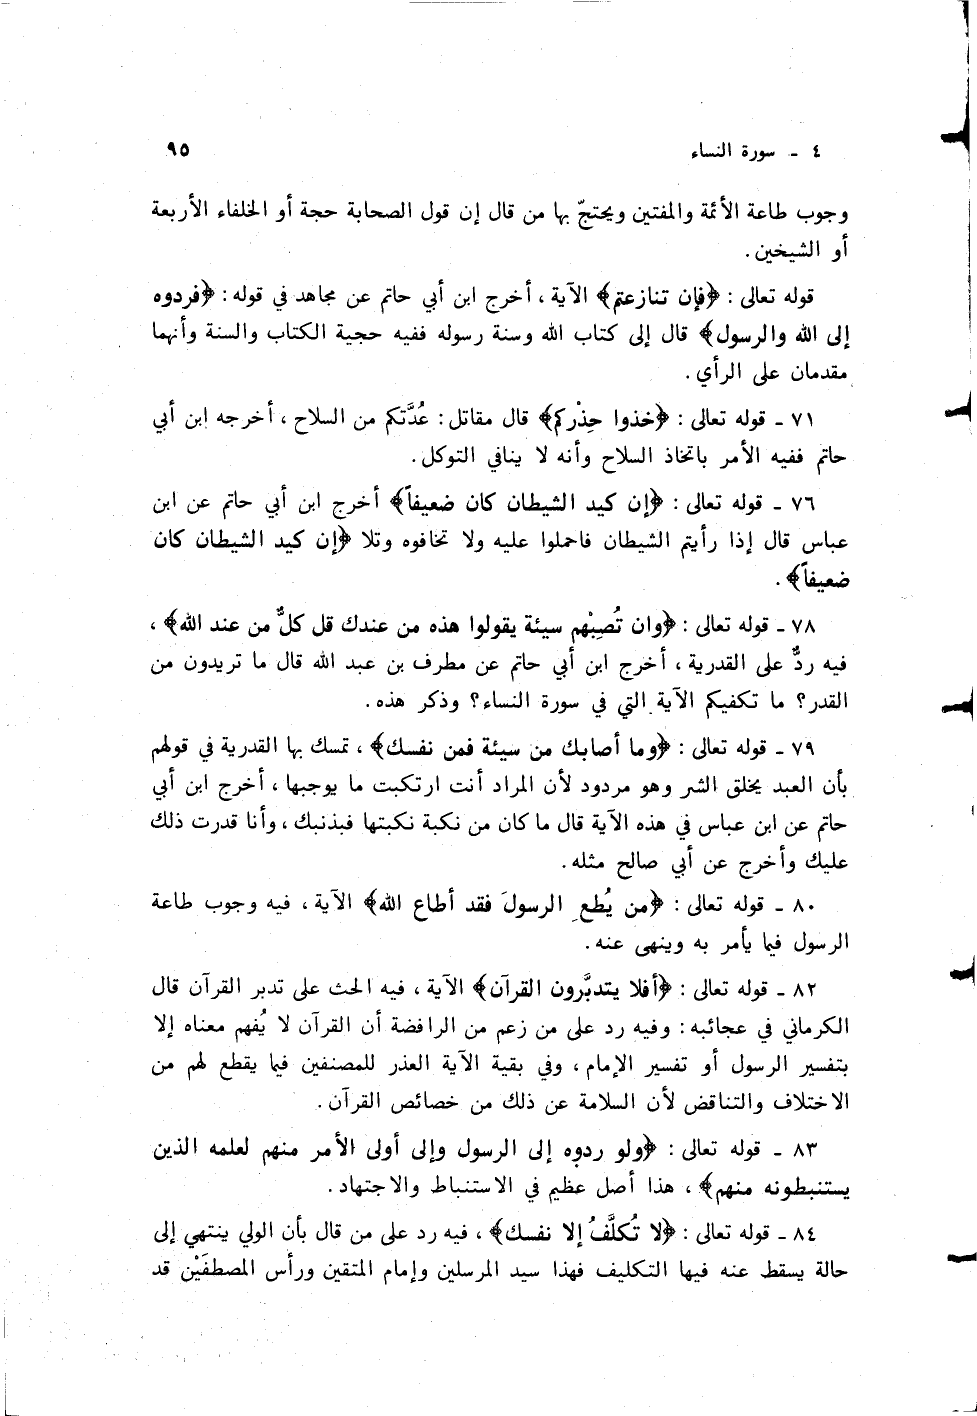 ٤ - سورة النساء ٩٥
وجوب طاعة الأئمة والمفتين ويحتجّ بها من قال إن قول الصحابة حجة أو الخلفاء الأربعة
أو الشيخين.
قوله تعالى: ﴿فإن تنازعتم﴾ الآية، أخرج ابن أبي حاتم عن مجاهد في قوله: ﴿فردوه
إلى الله والرسول﴾ قال إلى كتاب الله وسنة رسوله ففيه حجية الكتاب والسنة وأنهما
مقدمان على الرأي.
٧١ - قوله تعالى: ﴿خذوا حِذْركم﴾ قال مقاتل: عُدَّتكم من السلاح، أخرجه ابن أبي
حاتم ففيه الأمر باتخاذ السلاح وأنه لا ينافي التوكل.
٧٦ - قوله تعالى: ﴿إن كيد الشيطان كان ضعيفاً﴾ أخرج ابن أبي حاتم عن ابن
عباس قال إذا رأيتم الشيطان فاحملوا عليه ولا تخافوه وتلا ﴿إن كيد الشيطان كان
ضعيفاً﴾.
٧٨ - قوله تعالى: ﴿وان تُصِبْهم سيئة يقولوا هذه من عندك قل كلٌّ من عند الله﴾،
فيه ردٌّ على القدرية، أخرج ابن أبي حاتم عن مطرف بن عبد الله قال ما تريدون من
القدر؟ ما تكفيكم الآية التي في سورة النساء؟ وذكر هذه.
٧٩ - قوله تعالى: ﴿وما أصابك من سيئة فمن نفسك﴾، تمسك بها القدرية في قولهم
بأن العبد يخلق الشر وهو مردود لأن المراد أنت ارتكبت ما يوجبها، أخرج ابن أبي
حاتم عن ابن عباس في هذه الآية قال ما كان من نكبة نكبتها فبذنبك، وأنا قدرت ذلك
عليك وأخرج عن أبي صالح مثله.
٨٠ - قوله تعالى: ﴿من يُطعِ الرسولَ فقد أطاع الله﴾ الآية، فيه وجوب طاعة
الرسول فيما يأمر به وينهى عنه.
٨٢ - قوله تعالى: ﴿أفلا يتدبَّرون القرآن﴾ الآية، فيه الحث على تدبر القرآن قال
الكرماني في عجائبه: وفيه رد على من زعم من الرافضة أن القرآن لا يُفهم معناه إلا
بتفسير الرسول أو تفسير الإمام، وفي بقية الآية العذر للمصنفين فيما يقطع لهم من
الاختلاف والتناقض لأن السلامة عن ذلك من خصائص القرآن.
٨٣ - قوله تعالى: ﴿ولو ردوه إلى الرسول وإلى أولى الأمر منهم لعلمه الذين
يستنبطونه منهم﴾، هذا أصل عظيم في الاستنباط والاجتهاد.
٨٤ - قوله تعالى: ﴿لا تُكلَّفُ إلا نفسك﴾، فيه رد على من قال بأن الولي ينتهي إلى
حالة يسقط عنه فيها التكليف فهذا سيد المرسلين وإمام المتقين ورأس المصطفَيْن قد